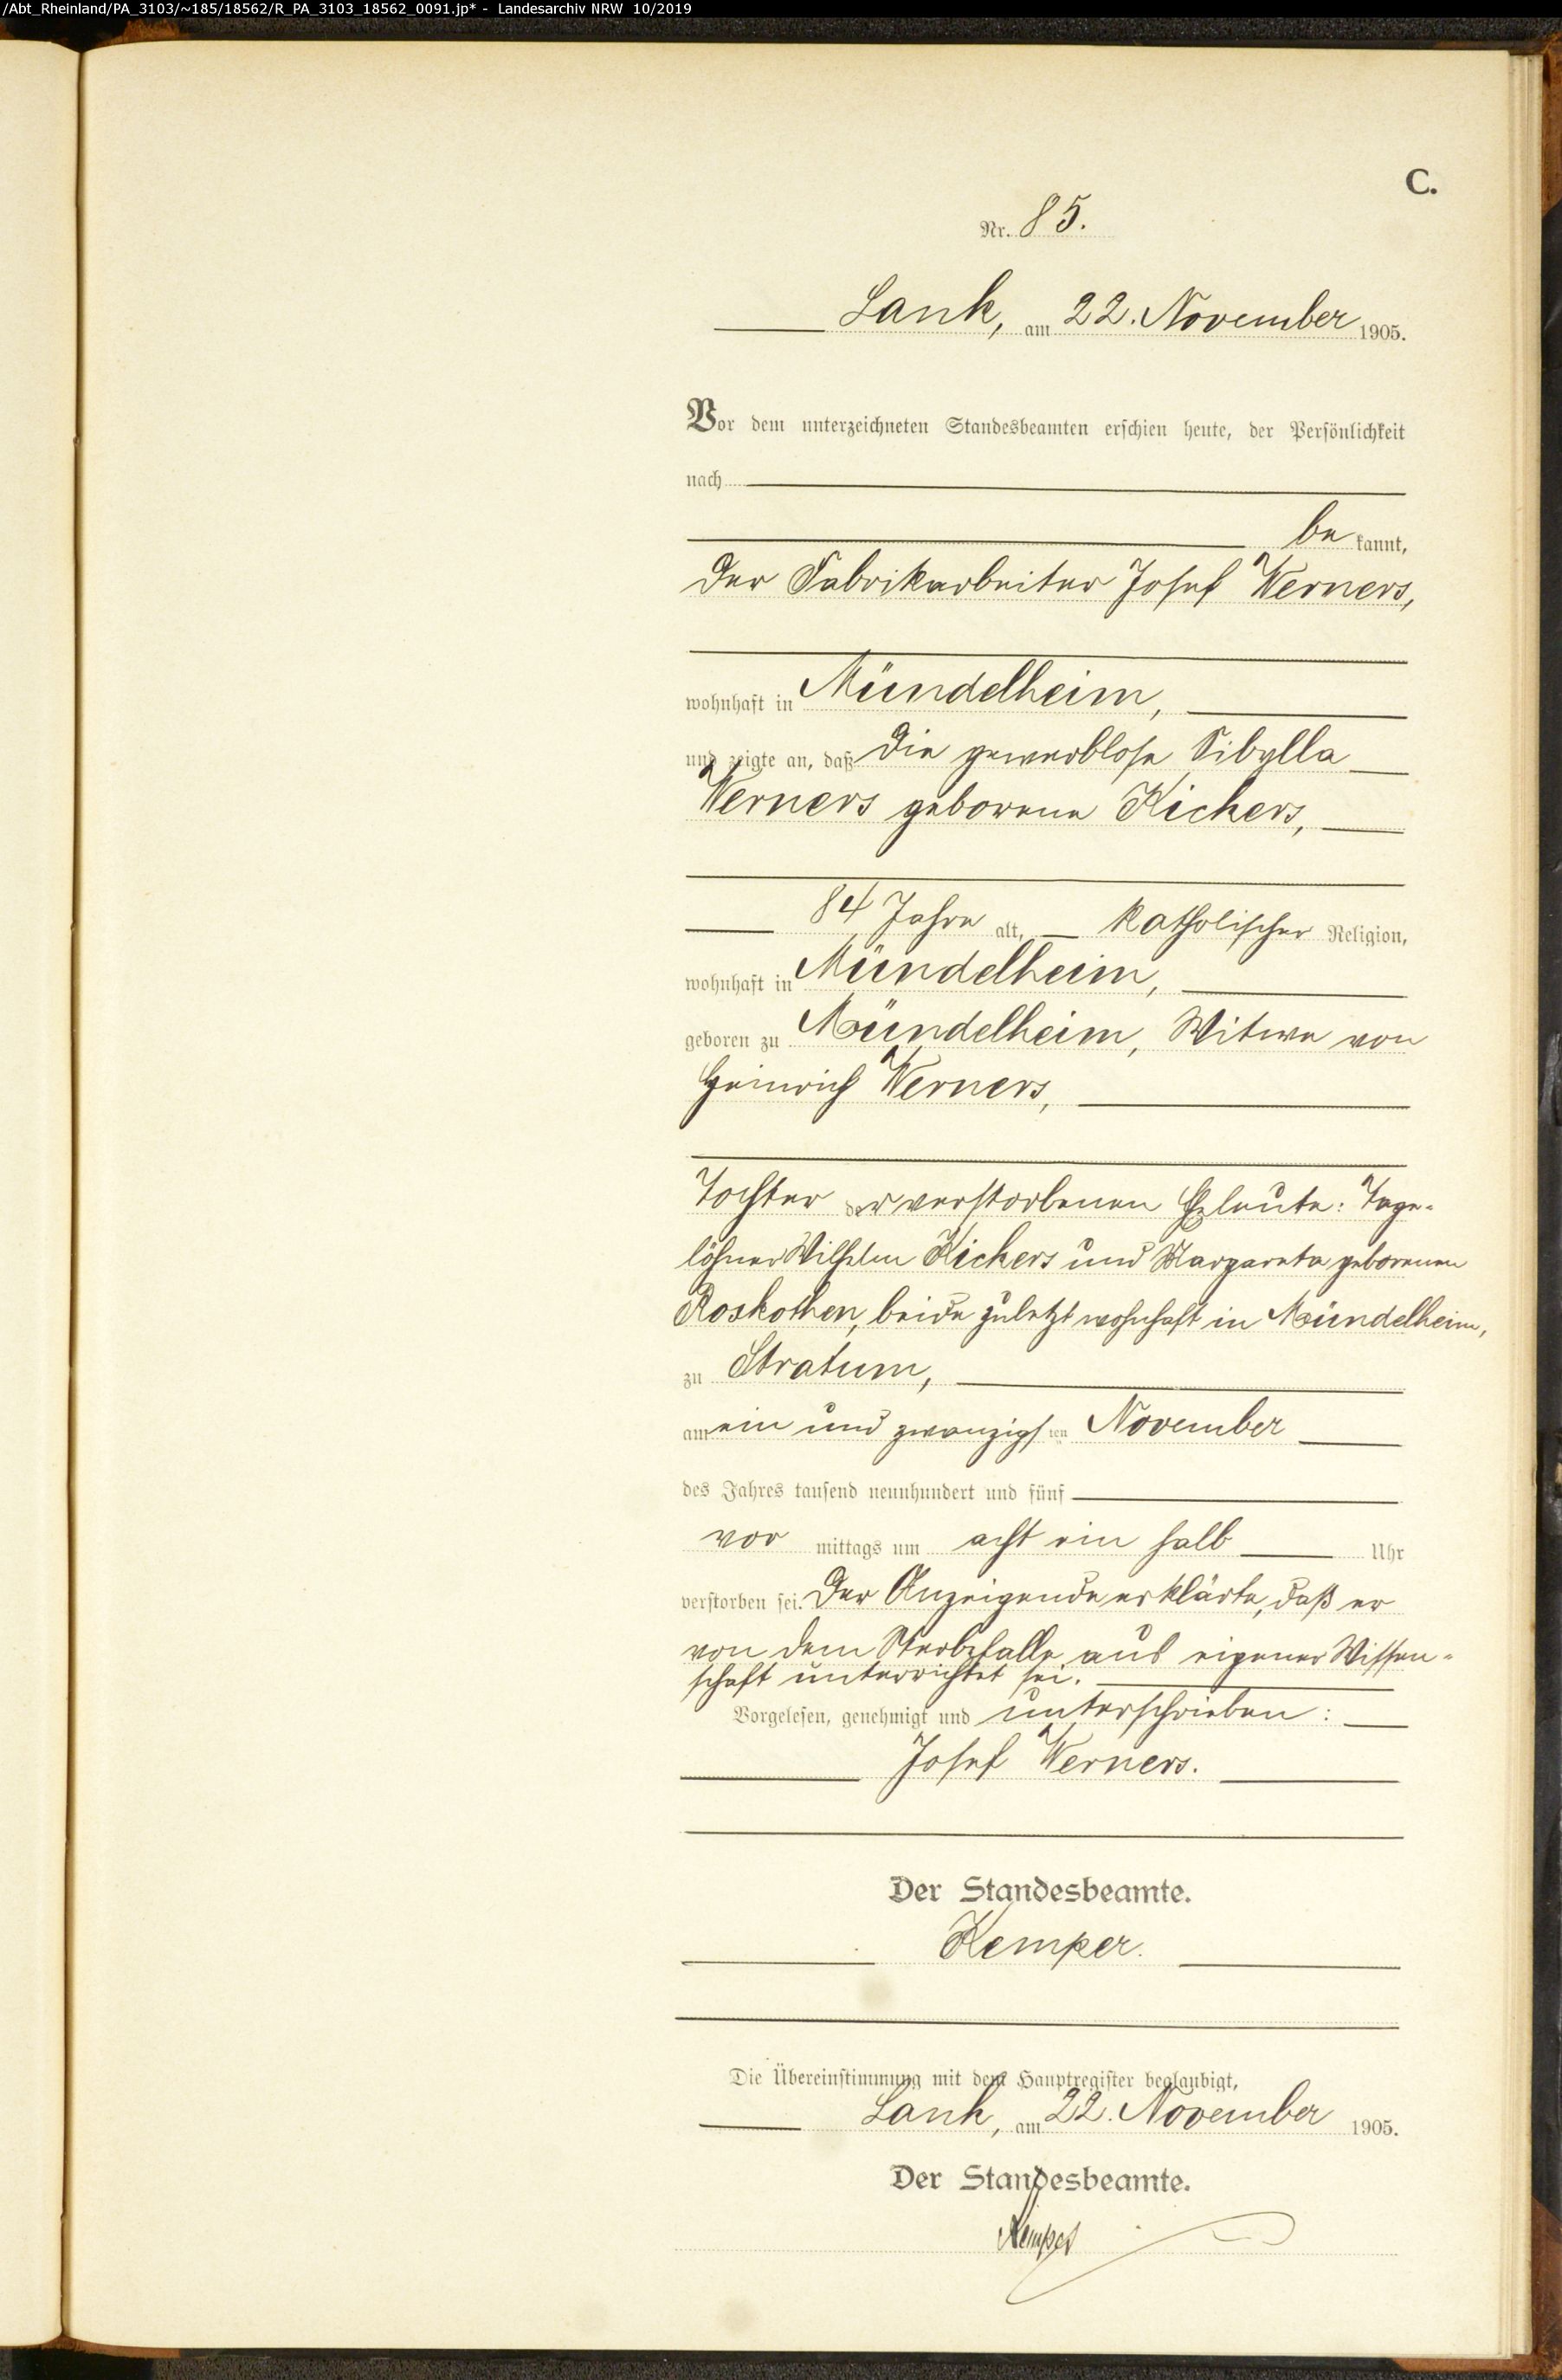 /Abt_Rheinland/PA_3103/~185/18562/R_PA_3103_18562_0091.jp* - Landesarchiv NRW 10/2019
C.
Nr. 85.
Lank, am 22. November 1905.
Vor dem unterzeichneten Standesbeamten erschien heute, der Persönlichkeit
nach
be kannt,
der Fabrikarbeiter Josef Werners,
wohnhaft in Mündelheim,
und zeigte an, daß die gewerblose Sibylla
Werners geborene Kickers,
84 Jahre alt, katholischer Religion,
wohnhaft in Mündelheim,
geboren zu Mündelheim, Witwe von
Heinrich Werners,
Tochter der verstorbenen Eheleute: Tage-
löhner Wilhelm Kickers und Margareta geborenen
Roskothen, beide zuletzt wohnhaft in Mündelheim,
zu Stratum,
am ein und zwanzigsten November
des Jahres tausend neunhundert und fünf
vor mittags um acht ein halb Uhr
verstorben sei. Der Anzeigende erklärte, daß er
von dem Sterbefalle aus eigener Wissen-
schaft unterrichtet sei.
Vorgelesen, genehmigt und unterschrieben:
Josef Werners.
Der Standesbeamte.
Kemper.
Die Übereinstimmung mit dem Hauptregister beglaubigt,
Lank, am 22. November 1905.
Der Standesbeamte.
Kemper